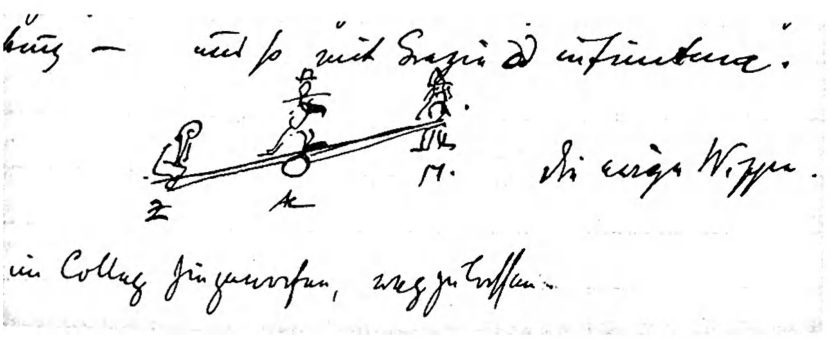 — und so mit Grazie ad infinitum.
M.
Z
die ewige Wippe.
im Colleg hingeworfen, wegzulassen.